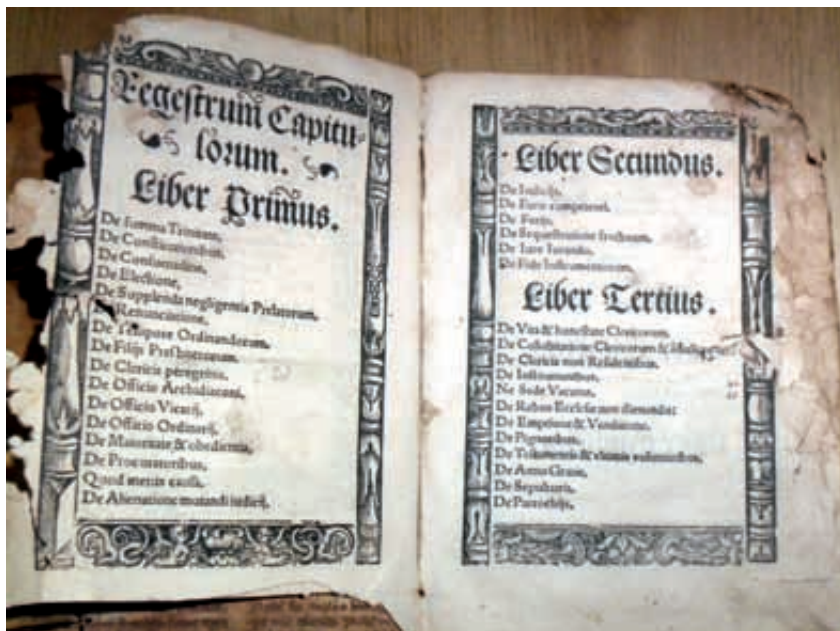 Regestrum Capitu-
lorum.
Liber Primus.
De Summa Trinitate,
De Constitutionibus,
De Consuetudine,
De Electione,
De Supplenda negligentia Prelatorum,
Renunciatione,
De Tempore Ordinandorum,
De Filijs Presbiterorum,
De Clericis peregrinis,
De Officio Archidiaconi,
De Officio Vicarij,
De Officio Ordinarij,
De Maioritate & obedientia,
De Procuratoribus,
Quod metus causa,
De Alienatione mutandi iudicij,
Liber Secundus.
De Iudicijs,
De Foro competenti,
De Ferijs,
De Sequestratione fructuum,
De Iure Iurando,
De Fide Instrumentorum,
Liber Tertius.
De Vita & honestate Clericorum,
De Cohabitatione Clericorum &
De Clericis non Residentibus,
De Institutionibus,
Ne Sede Vacante,
De Rebus Ecclesie non alienandis
De Emptione & Venditione,
De Pignoribus,
De Testamentis & ultimis voluntatibus,
De Anno Gratie,
De Sepulturis,
De Parrochijs,